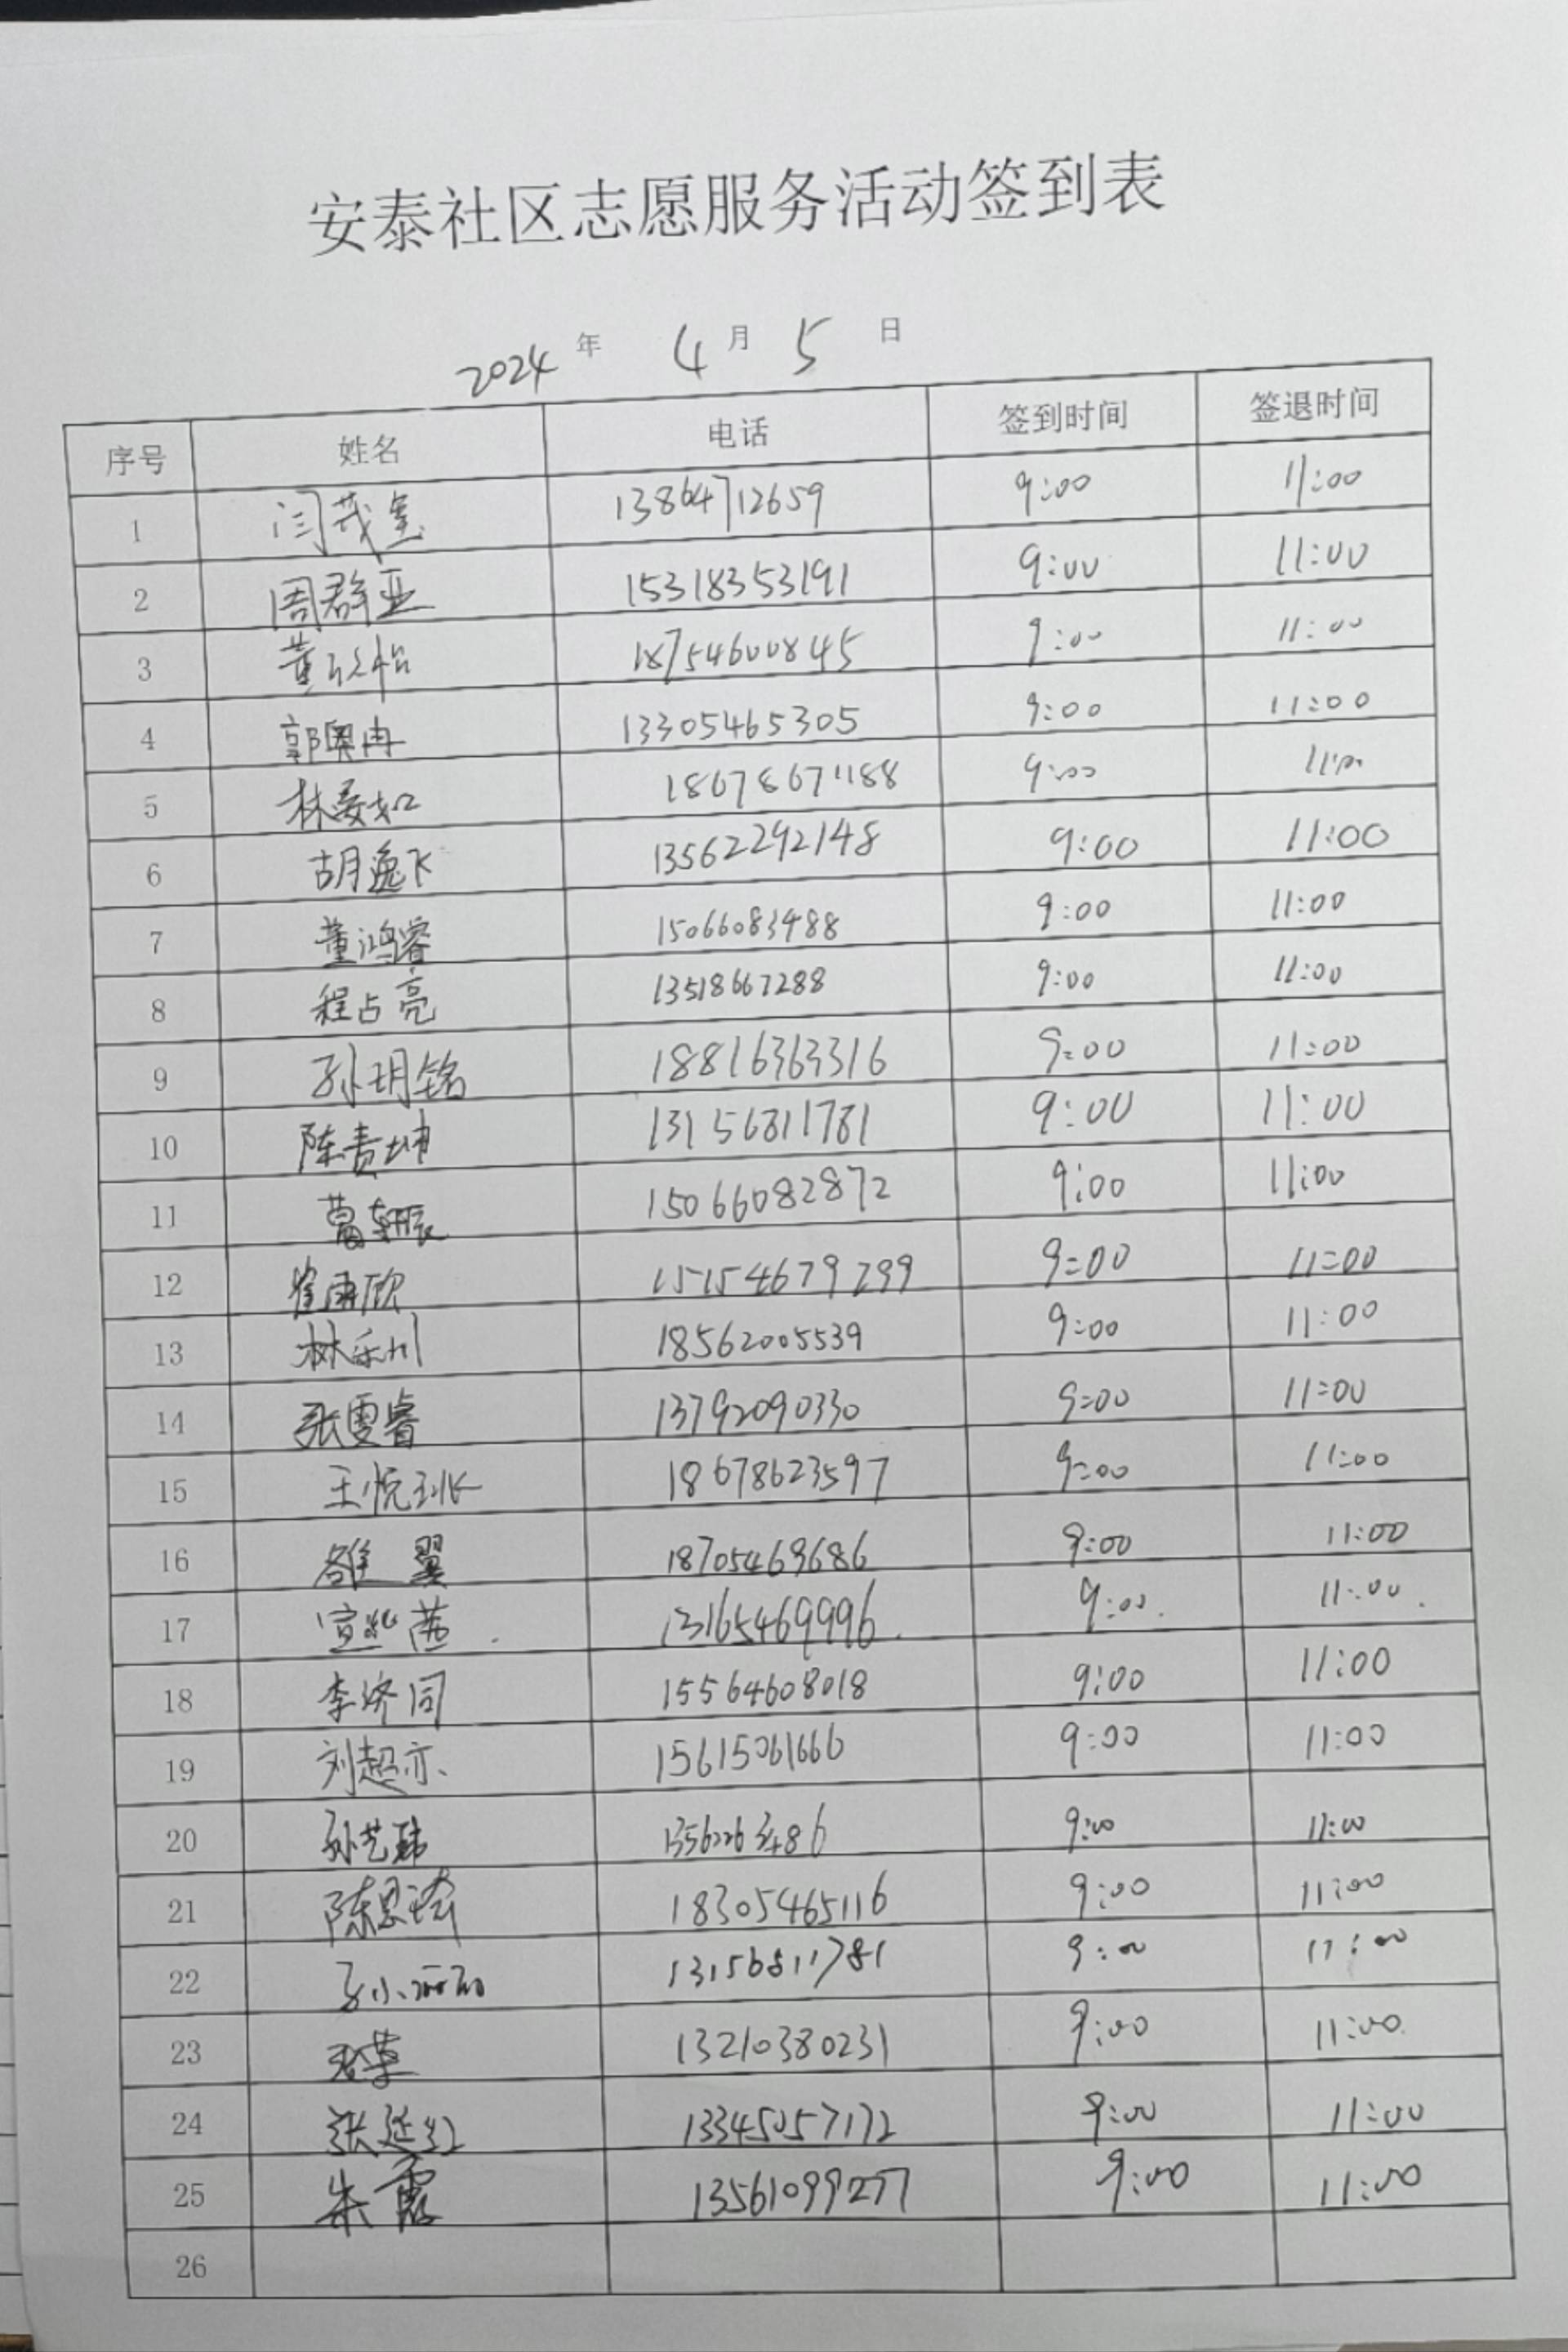 安泰社区志愿服务活动签到表
2024 年 4 月 5 日
序号 姓名 电话 签到时间 签退时间
1 闫茂 13864712659 9:00 11:00
2 周群亚 15318353191 9:00 11:00
3 董 怡 18754600845 9:00 11:00
4 郭奥冉 13305465305 9:00 11:00
5 林 如 18678671188 9:00 11:00
6 胡逸飞 13562292148 9:00 11:00
7 董鸿睿 15066083488 9:00 11:00
8 程占亮 13518667288 9:00 11:00
9 孙玥铭 18816363316 9:00 11:00
10 陈责坤 13156811781 9:00 11:00
11 葛轩辰 15066082872 9:00 11:00
12 崔雨欣 15154679299 9:00 11:00
13 林禾川 18562005539 9:00 11:00
14 张雯睿 13792090330 9:00 11:00
15 王悦 18678623597 9:00 11:00
16 雒翼 18705469686 9:00 11:00
17 宣 茜 13165469996 9:00 11:00
18 李济同 15564608018 9:00 11:00
19 刘超亦 15615061666 9:00 11:00
20 孙艺 9:00 11:00
21 陈思琦 18305465116 9:00 11:00
22 孙 13156811781 9:00 11:00
23 13210380231 9:00 11:00
24 张延红 13345057172 9:00 11:00
25 朱霞 13561099277 9:00 11:00
26